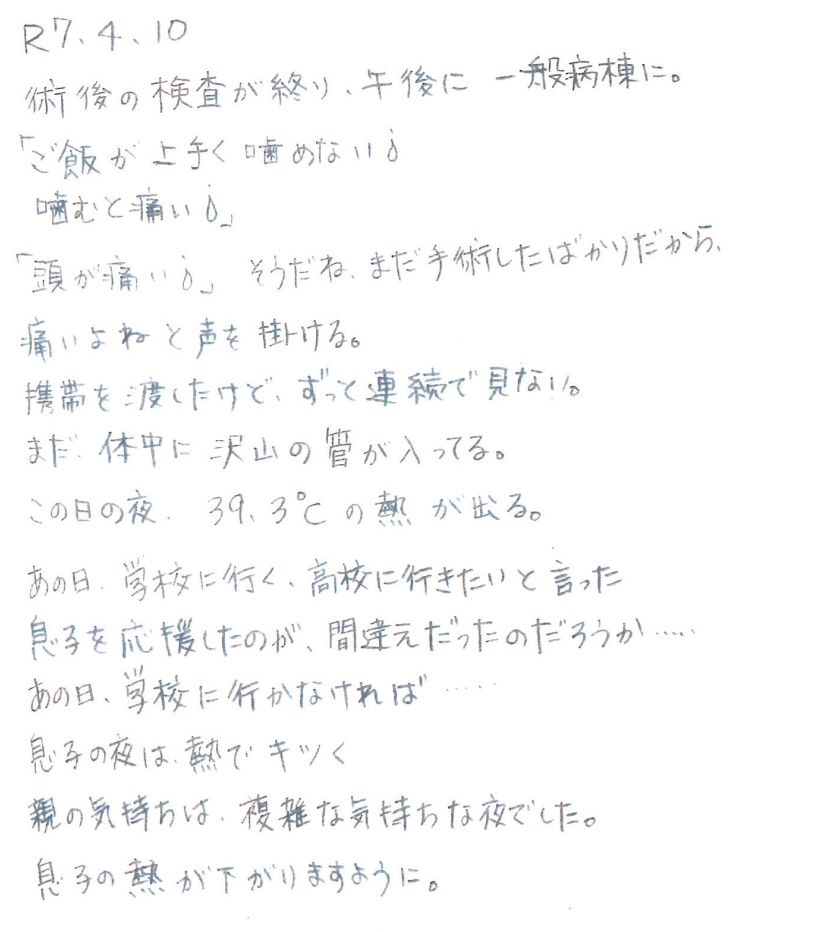 R7.4.10
術後の検査が終り、午後に 一般病棟に。
「ご飯が上手く噛めない💧
噛むと痛い💧」
「頭が痛い💧」 そうだね、まだ手術したばかりだから、
痛いよねと声を掛ける。
携帯を渡したけど、ずっと連続で見ない。
まだ、体中に沢山の管が入ってる。
この日の夜、 39.3℃の熱が出る。
あの日、学校に行く、高校に行きたいと言った
息子を応援したのが、間違えだったのだろうか……
あの日、学校に行かなければ……
息子の夜は、熱でキツく
親の気持ちは、複雑な気持ちな夜でした。
息子の熱が下がりますように。